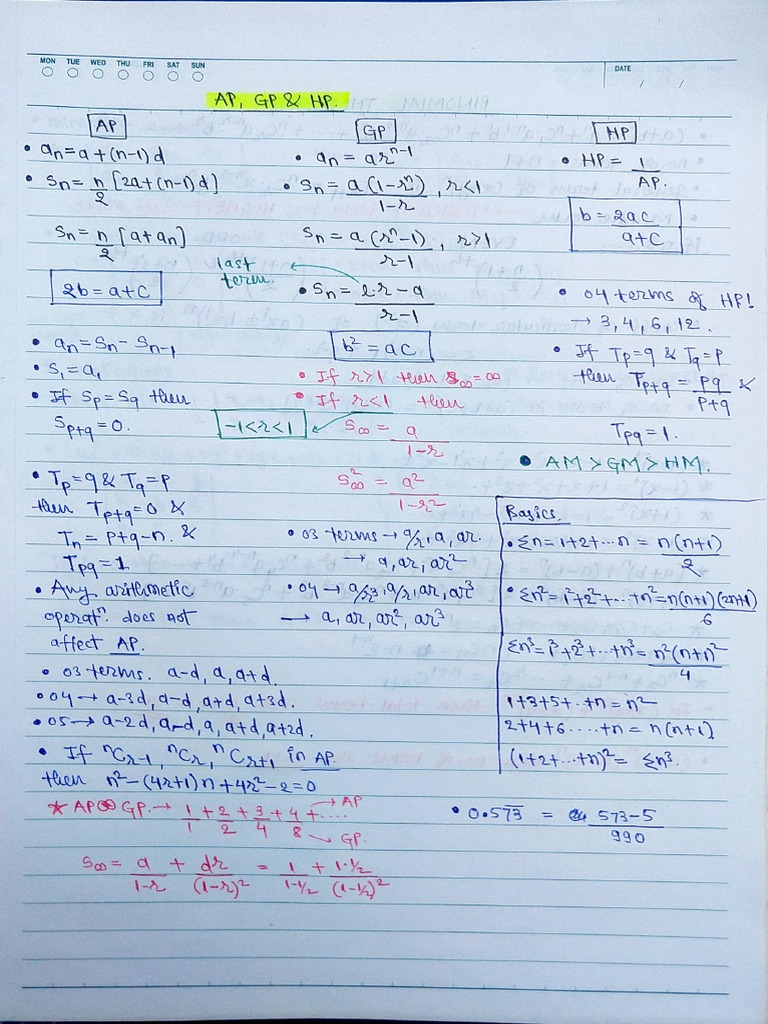 MON TUE WED THU FRI SAT SUN
DATE
AP, GP & HP.
AP
• an = a + (n-1) d
• Sn = n/2 [2a + (n-1) d]
Sn = n/2 [a + an]
2b = a + c
• an = Sn - Sn-1
• S1 = a1
• If Sp = Sq then
Sp+q = 0.
• Tp = q & Tq = p
then Tp+q = 0 &
Tn = p+q-n. &
Tpq = 1
• Any arithmetic
operatⁿ. does not
affect AP.
• 03 terms. a-d, a, a+d.
• 04 → a-3d, a-d, a+d, a+3d.
• 05 → a-2d, a-d, a, a+d, a+2d.
• If ⁿCr-1, ⁿCr, ⁿCr+1 in AP.
then n² - (4r+1) n + 4r² - 2 = 0
★ AP GP. → 1/1 + 2/2 + 3/4 + 4/8 + .... → AP
→ GP.
S∞ = a/(1-r) + dr/(1-r)² = 1/(1-1/2) + 1·1/2/(1-1/2)²
GP
• an = arⁿ⁻¹
• Sn = a(1-rⁿ)/(1-r), r<1
Sn = a(rⁿ-1)/(r-1), r>1
last
term.
• Sn = l·r - a/(r-1)
b² = ac
• If r>1 then S∞ = ∞
• If r<1 then
-1<r<1
S∞ = a/(1-r)
S∞² = a²/(1-r²)
• 03 terms → a/r, a, ar.
→ a, ar, ar²
• 04 → a/r³, a/r, ar, ar³
→ a, ar, ar², ar³
HP
• HP = 1/AP.
b = 2ac/(a+c)
• 04 terms of HP!
→ 3, 4, 6, 12.
• If Tp = q & Tq = p
then Tp+q = pq/(p+q) &
Tpq = 1.
• AM > GM > HM.
Basics.
• Σn = 1+2+...n = n(n+1)/2
• Σn² = 1²+2²+...+n² = n(n+1)(2n+1)/6
Σn³ = 1³+2³+...+n³ = n²(n+1)²/4
1+3+5+..+n = n²
2+4+6.....+n = n(n+1)
(1+2+...+n)² = Σn³.
• 0.57̅3̅ = 573-5/990